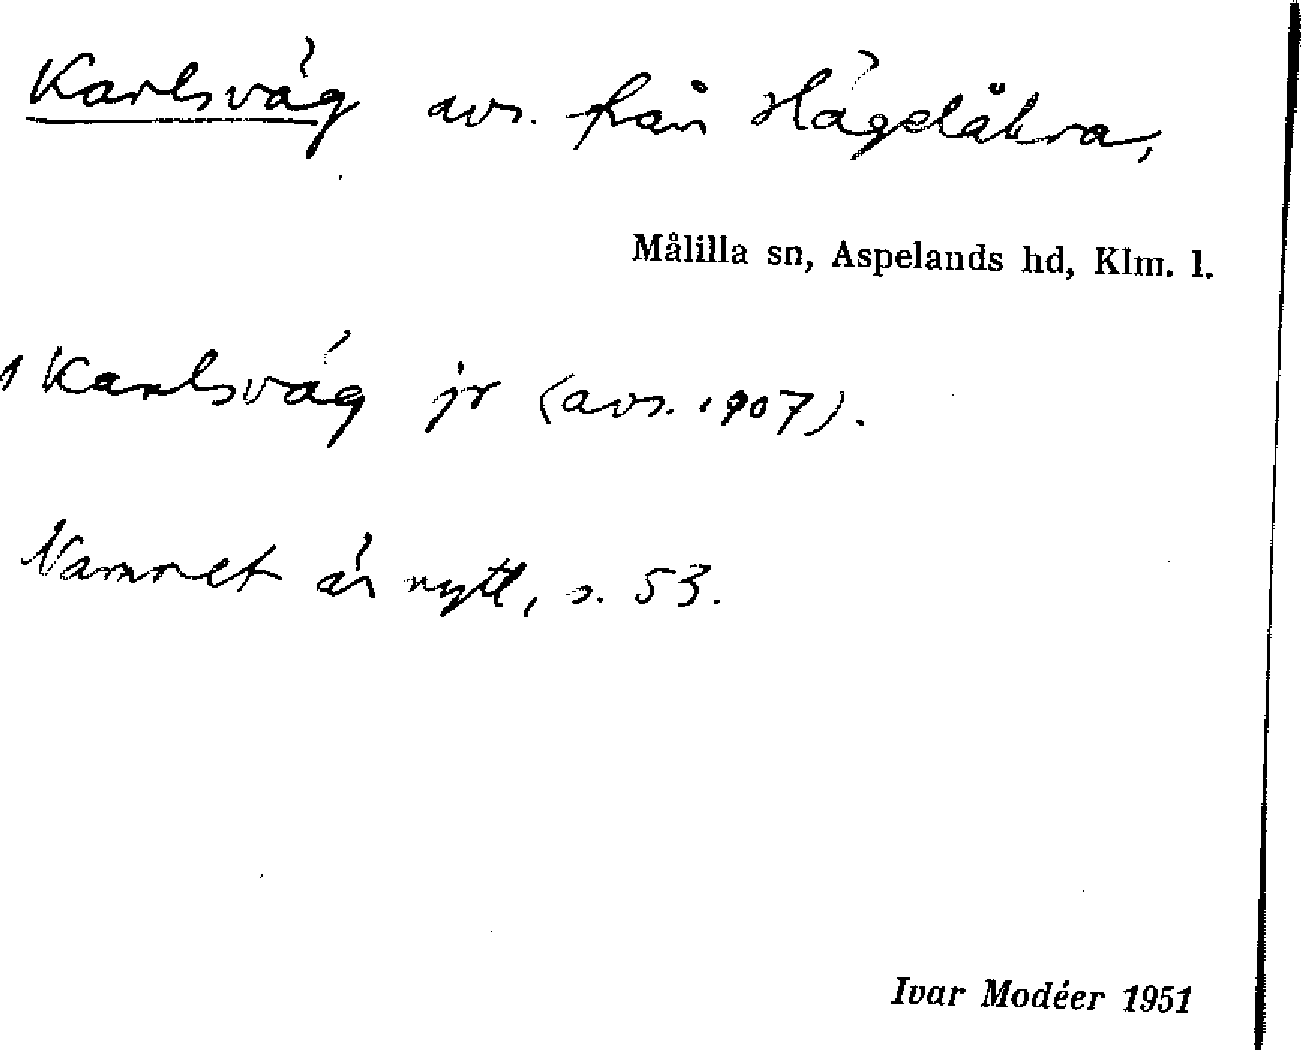 Karlsväg avs. från Hägelåkra,
Målilla sn, Aspelands hd, Klm. l.
1 Karlsväg jr (avs. 1907).
Namnet är nytt, s. 53.
Ivar Modéer 1951